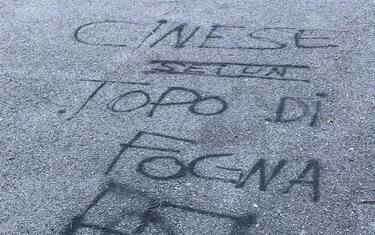 CINESE
SEI UN
TOPO DI
FOGNA